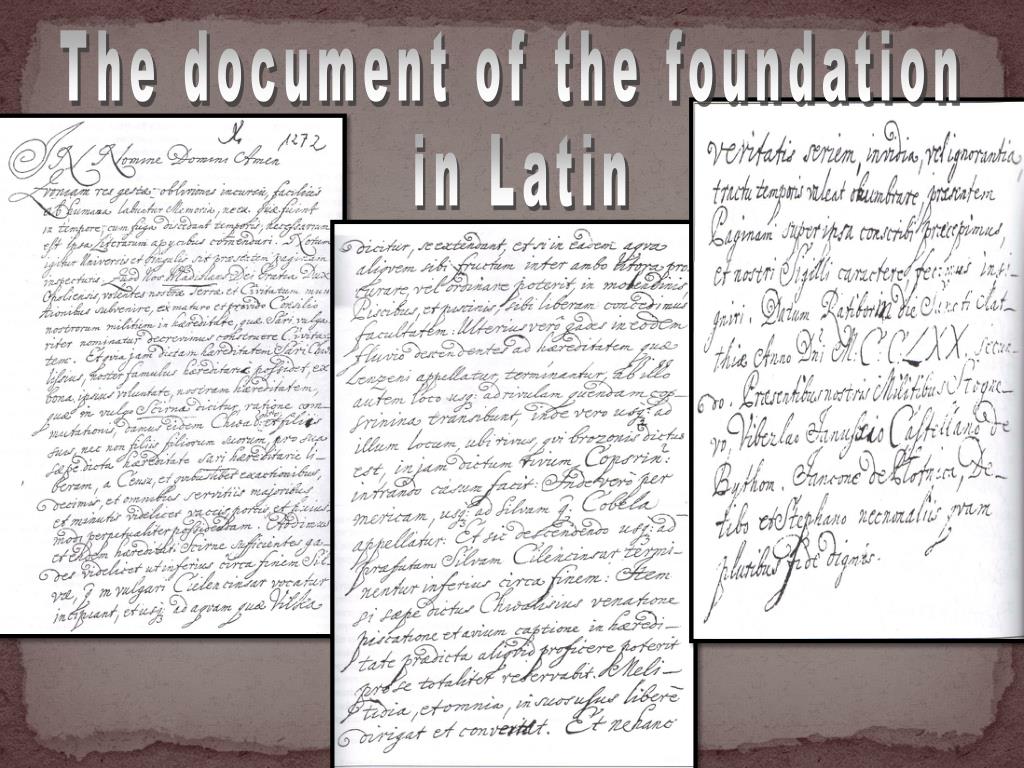 The document of the foundation
in Latin
1272
In Nomine Domini Amen
res gestæ oblivionis incurrū, facilius
ab humana labiatur Memoria, necex. quæ fiunt
in tempore, cum fuga discedant temporis, necessarium
est ipsa literarum apycibus comendari. Notum
igitur Universis et singulis sit præsentem paginam
inspecturis, Quod Nos Dei Gratia Dux
Opoliensis, volentes nostræ Terræ et Civitatum
subvenire, ex maturo et provido Consilio
nostrorum militum in hæreditate, quæ Sari vulga-
riter nominatur decrevimus
teme. Et quia jam dictam hæreditatem Sari
nostor famulus hæreditarie possidet, ex
bona, ipsius voluntate, nostram hæreditatem,
quæ in vulgo Scirna dicitur, ratione com-
mutationis, danus eidem
suis, nec non filiis filiorum suorum, pro sua
sæpe dicta hæreditate sari hæreditarie li-
beram, a Censu, et omnibus exactionibus,
decimis, et omnibus servitiis majoribus
et minutis videlicet
modi perpetualiter possidendam. Ordinamus
et eidem hæreditati Scirne sufficientes ga-
des videlicet ut inferius circa finem Sil-
væ, q̄ in vulgari Cielencinsur vocatur
incipiant, et usq; ad agram quæ
dicitur, se extendant, et si in eadem agva
aliqvem sibi fructum inter ambo littora pro-
curare vel ordinare poterit, in molendinis
Piscibus, et piscinis, sibi liberam concedimus
facultatem. Ulterius verò gades in eodem
fluvio descendentes ad hæreditatem quæ
Lenzeni appellatur, terminantur, ab illo
autem loco usq; ad rivulum quendam
transibunt, inde vero usq; ad
illum locum, ubi rivus, qvi brozonis dictus
est, in jam dictum rivum Copsrin:
intrando casum facit: Inde verò per
mericam, usq; ad Silvam q̄. Cobela
appellatur. Et sic descendendo usq; ad
præfatam Silvam Cilencinsur termi-
nentur inferius circa finem: Item
si sæpe dictus Chwalisius venatione
piscatione et avium captione in hæredi-
tate prædicta aliqvid proficere poterit
pro se totaliter reservabit. Meli-
et omnia, in suos usus liberè
dirigat et convertat. Et ne hanc
veritatis seriem, invidia, vel ignorantia
tractu temporis valeat obumbrare, præsentem
Paginam super ipsa conscribi præcepimus,
et nostri Sigilli caractere fecimus insi-
gniri. Datum Ratibor die Sancti Mat-
thiæ Anno Dni M. C: C. LXX, secun-
do. Præsentibus nostris Militibus Stogne-
vo, Viberlao Castellano de
Bythom. Jancone de De-
tibo et Stephano necnon aliis qvam
pluribus fide dignis.